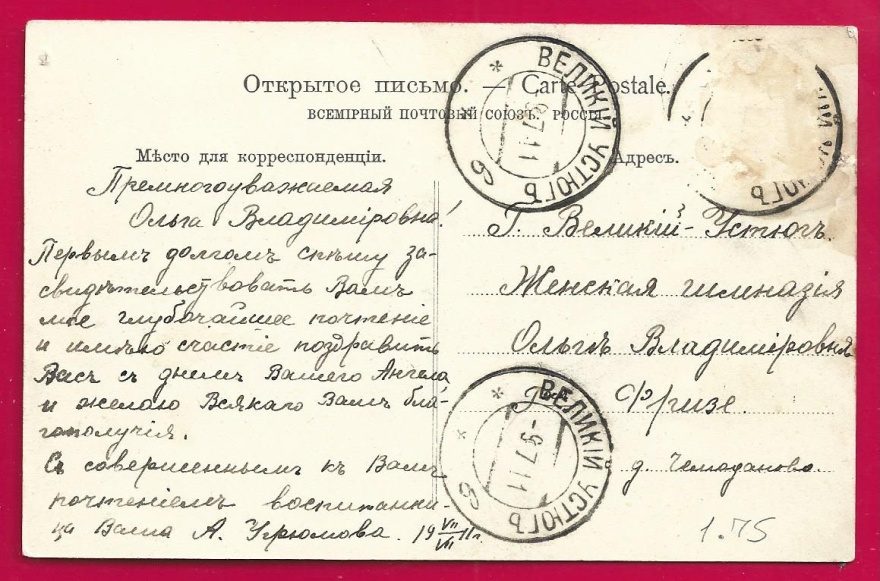 Открытое письмо. — Carte Postale.
ВСЕМІРНЫЙ ПОЧТОВЫЙ СОЮЗЪ. РОССІЯ.
Мѣсто для корреспонденціи.
Адресъ.
Премногоуважаемая
Ольга Владиміровна!
Первымъ долгомъ спѣшу за-
свидѣтельствовать Вамъ
мое глубочайшее почтеніе
и имѣю счастіе поздравить
Васъ съ днемъ Вашего Ангела
и желаю Всякаго Вамъ бла-
гополучія.
Съ совершеннымъ къ Вамъ
почтеніемъ воспитанни-
ца Ваша А. Угрюмова. 19 VII/VII 11г.
Г. Великій-Устюгъ.
Женская гимназія
Ольгѣ Владиміровнѣ
Фризе.
д. Чемоданова.
1.75
ВЕЛИКІЙ УСТЮГЪ
-9.7.11
ВЕЛИКІЙ УСТЮГЪ
-9.7.11
ІЙ УСТЮГЪ